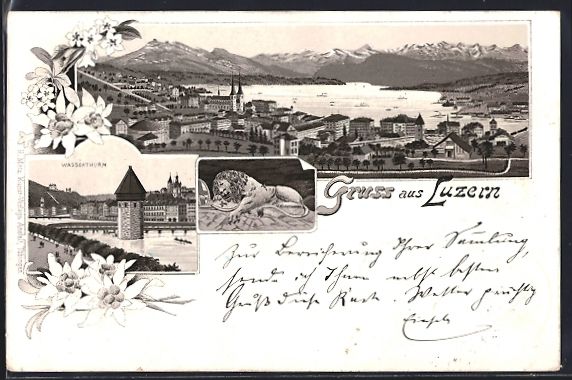 WASSERTHURM
Gruss aus Luzern
Zur Bereicherung Ihrer Samlung,
sende ich Ihnen nebst besten
Gruß diese Karte. Wetter prächtig